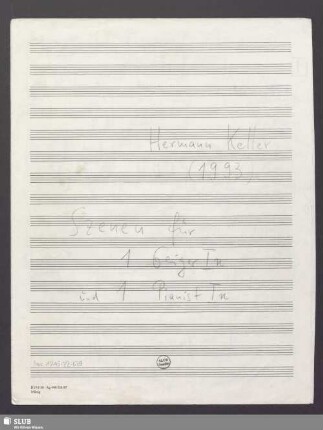 Hermann Keller
(1993)
Szenen für
1 Geiger In
und 1 Pianist In
SLUB
Wir führen Wissen.